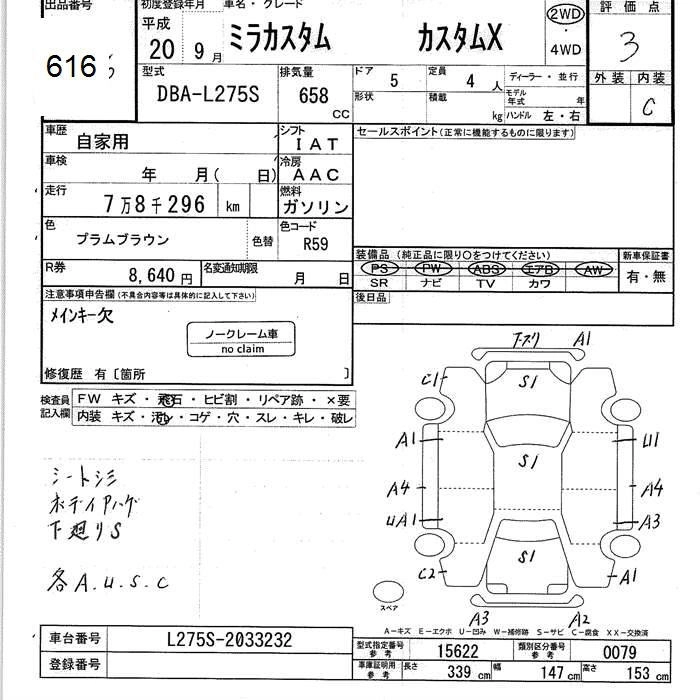 出品番号
616
初度登録年月
平成
20 9月
車名・グレード
ミラカスタム カスタムX
2WD
4WD
評価点
3
外装 内装
C
型式
DBA-L275S
排気量
658
CC
ドア 5
定員 4人
形状
積載 kg
ディーラー・並行
モデル年式 年
ハンドル 左・右
車歴
自家用
シフト
IAT
車検
年 月( 日)
冷房
AAC
走行
7万8千296 km
燃料
ガソリン
色
プラムブラウン
色替
色コード
R59
R券
8,640円
名変通知期限
月 日
セールスポイント(正常に機能するものに限ります)
装備品(純正品に限り○をつけてください)
PS PW ABS エアB AW
SR ナビ TV カワ
新車保証書
有・無
後日品
注意事項申告欄(不具合内容等は具体的に記入して下さい)
メインキー欠
ノークレーム車
no claim
修復歴 有〔箇所 〕
検査員
記入欄
FW キズ・飛石・ヒビ割・リペア跡・×要
内装 キズ・汚レ・コゲ・穴・スレ・キレ・破レ
シートシミ
ボディアハゲ
下廻りS
各A.U.S.C
A1
C1
S1
A1
U1
S1
A4
A4
UA1
A3
S1
C2
A1
スペア
A3
A2
A-キズ E-エクボ U-凹み W-補修跡 S-サビ C-腐食 XX-交換済
車台番号
L275S-2033232
登録番号
型式指定番号
参考
15622
類別区分番号
参考
0079
車庫証明用
参考
長さ 339 cm
幅 147 cm
高さ 153 cm